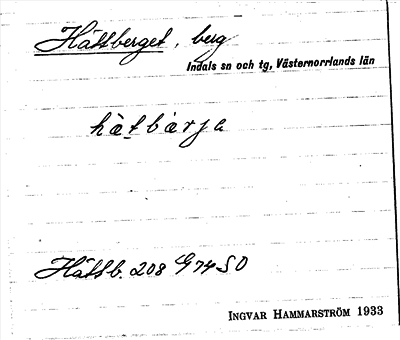 Hättberget, berg
Indals sn och tg, Västernorrlands län
hä̀tbàrja
Hättsb. 208 G 74 SO
INGVAR HAMMARSTRÖM 1933